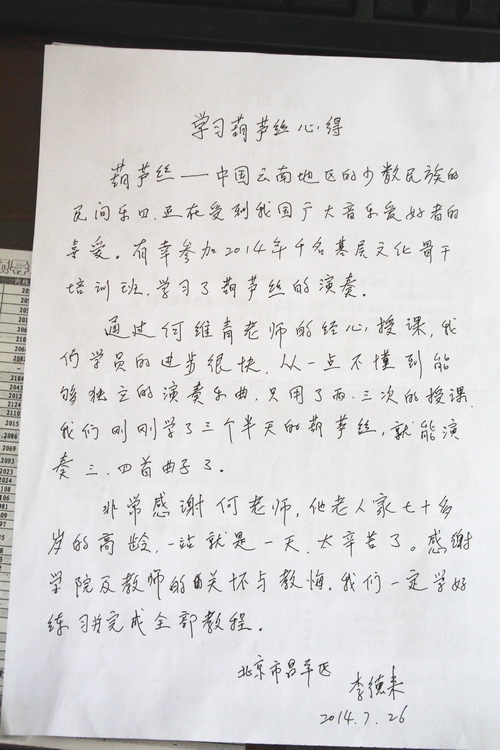 学习葫芦丝心得
葫芦丝——中国云南地区的少数民族的
民间乐口,正在受到我国广大音乐爱好者的
喜爱。有幸参加2014年千名基层文化骨干
培训班,学习了葫芦丝的演奏。
通过何维青老师的经心授课,我
们学员的进步很快,从一点不懂到能
够独立的演奏乐曲,只用了两、三次的授课
我们刚刚学了三个半天的葫芦丝,就能演
奏三、四首曲子了。
非常感谢何老师,他老人家七十多
岁的高龄,一站就是一天,太辛苦了。感谢
学院及教师的关怀与教悔,我们一定学好
练习并完成全部教程。
北京市昌平区
李德来
2014.7.26
2084
2069
2093
2023
2024
2015